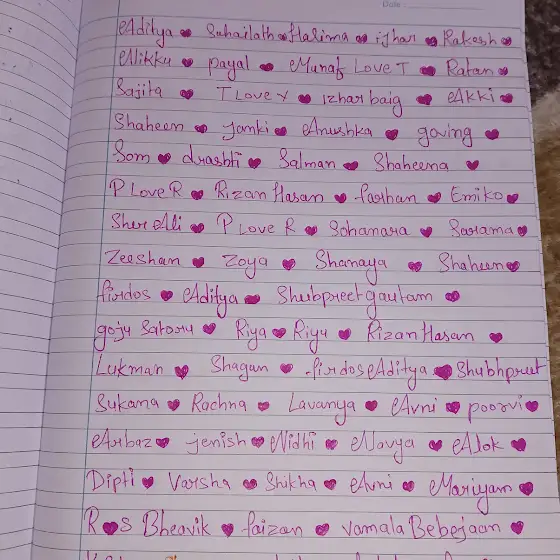 Date :
Aditya ♥ Suhailath ♥ Halima ♥ izhar ♥ Rakesh ♥
Nikku ♥ payal ♥ Munaf Love T ♥ Ratan ♥
Sajita ♥ T Love Y ♥ izhar baig ♥ Akki ♥
Shaheen ♥ Janki ♥ Anushka ♥ goving ♥
Som ♥ drashti ♥ Salman ♥ Shaheena ♥
P Love R ♥ Rizan Hasan ♥ farhan ♥ Emiko ♥
Sher Ali ♥ P Love R ♥ Sohamara ♥ Sarama ♥
Zeeshan ♥ Zoya ♥ Shanaya ♥ Shaheen ♥
firdos ♥ Aditya ♥ Shubpreet gautam ♥
goju Satoru ♥ Riya ♥ Riyu ♥ Rizan Hasan ♥
Lukman ♥ Shagan ♥ firdos Aditya ♥ Shubhpreet
Sukana ♥ Rachna ♥ Lavanya ♥ Avni ♥ poorvi ♥
Arbaz ♥ jenish ♥ Nidhi ♥ Navya ♥ Alok ♥
Dipti ♥ Varsha ♥ Shikha ♥ Avni ♥ Mariyam ♥
R ♥ S Bheavik ♥ faizan ♥ vamala Bebejaan ♥